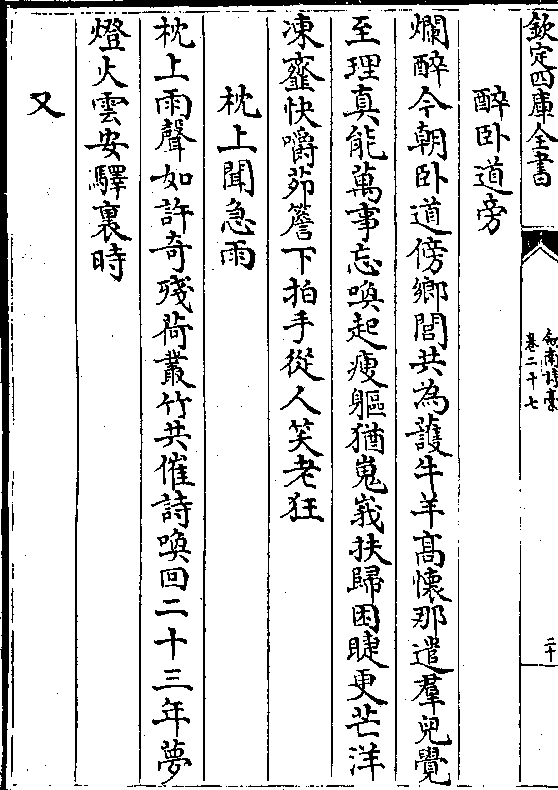 欽定四庫全書
劍南詩藁
卷二十七
二十
醉卧道旁
爛醉今朝卧道傍鄉閭共為護牛羊高懷那遣羣兒覺
至理真能萬事忘喚起瘦軀猶嵬峩扶歸困睫更芒洋
凍虀快嚼茆簷下拍手從人笑老狂
枕上聞急雨
枕上雨聲如許奇殘荷叢竹共催詩喚回二十三年夢
燈火雲安驛裏時
又